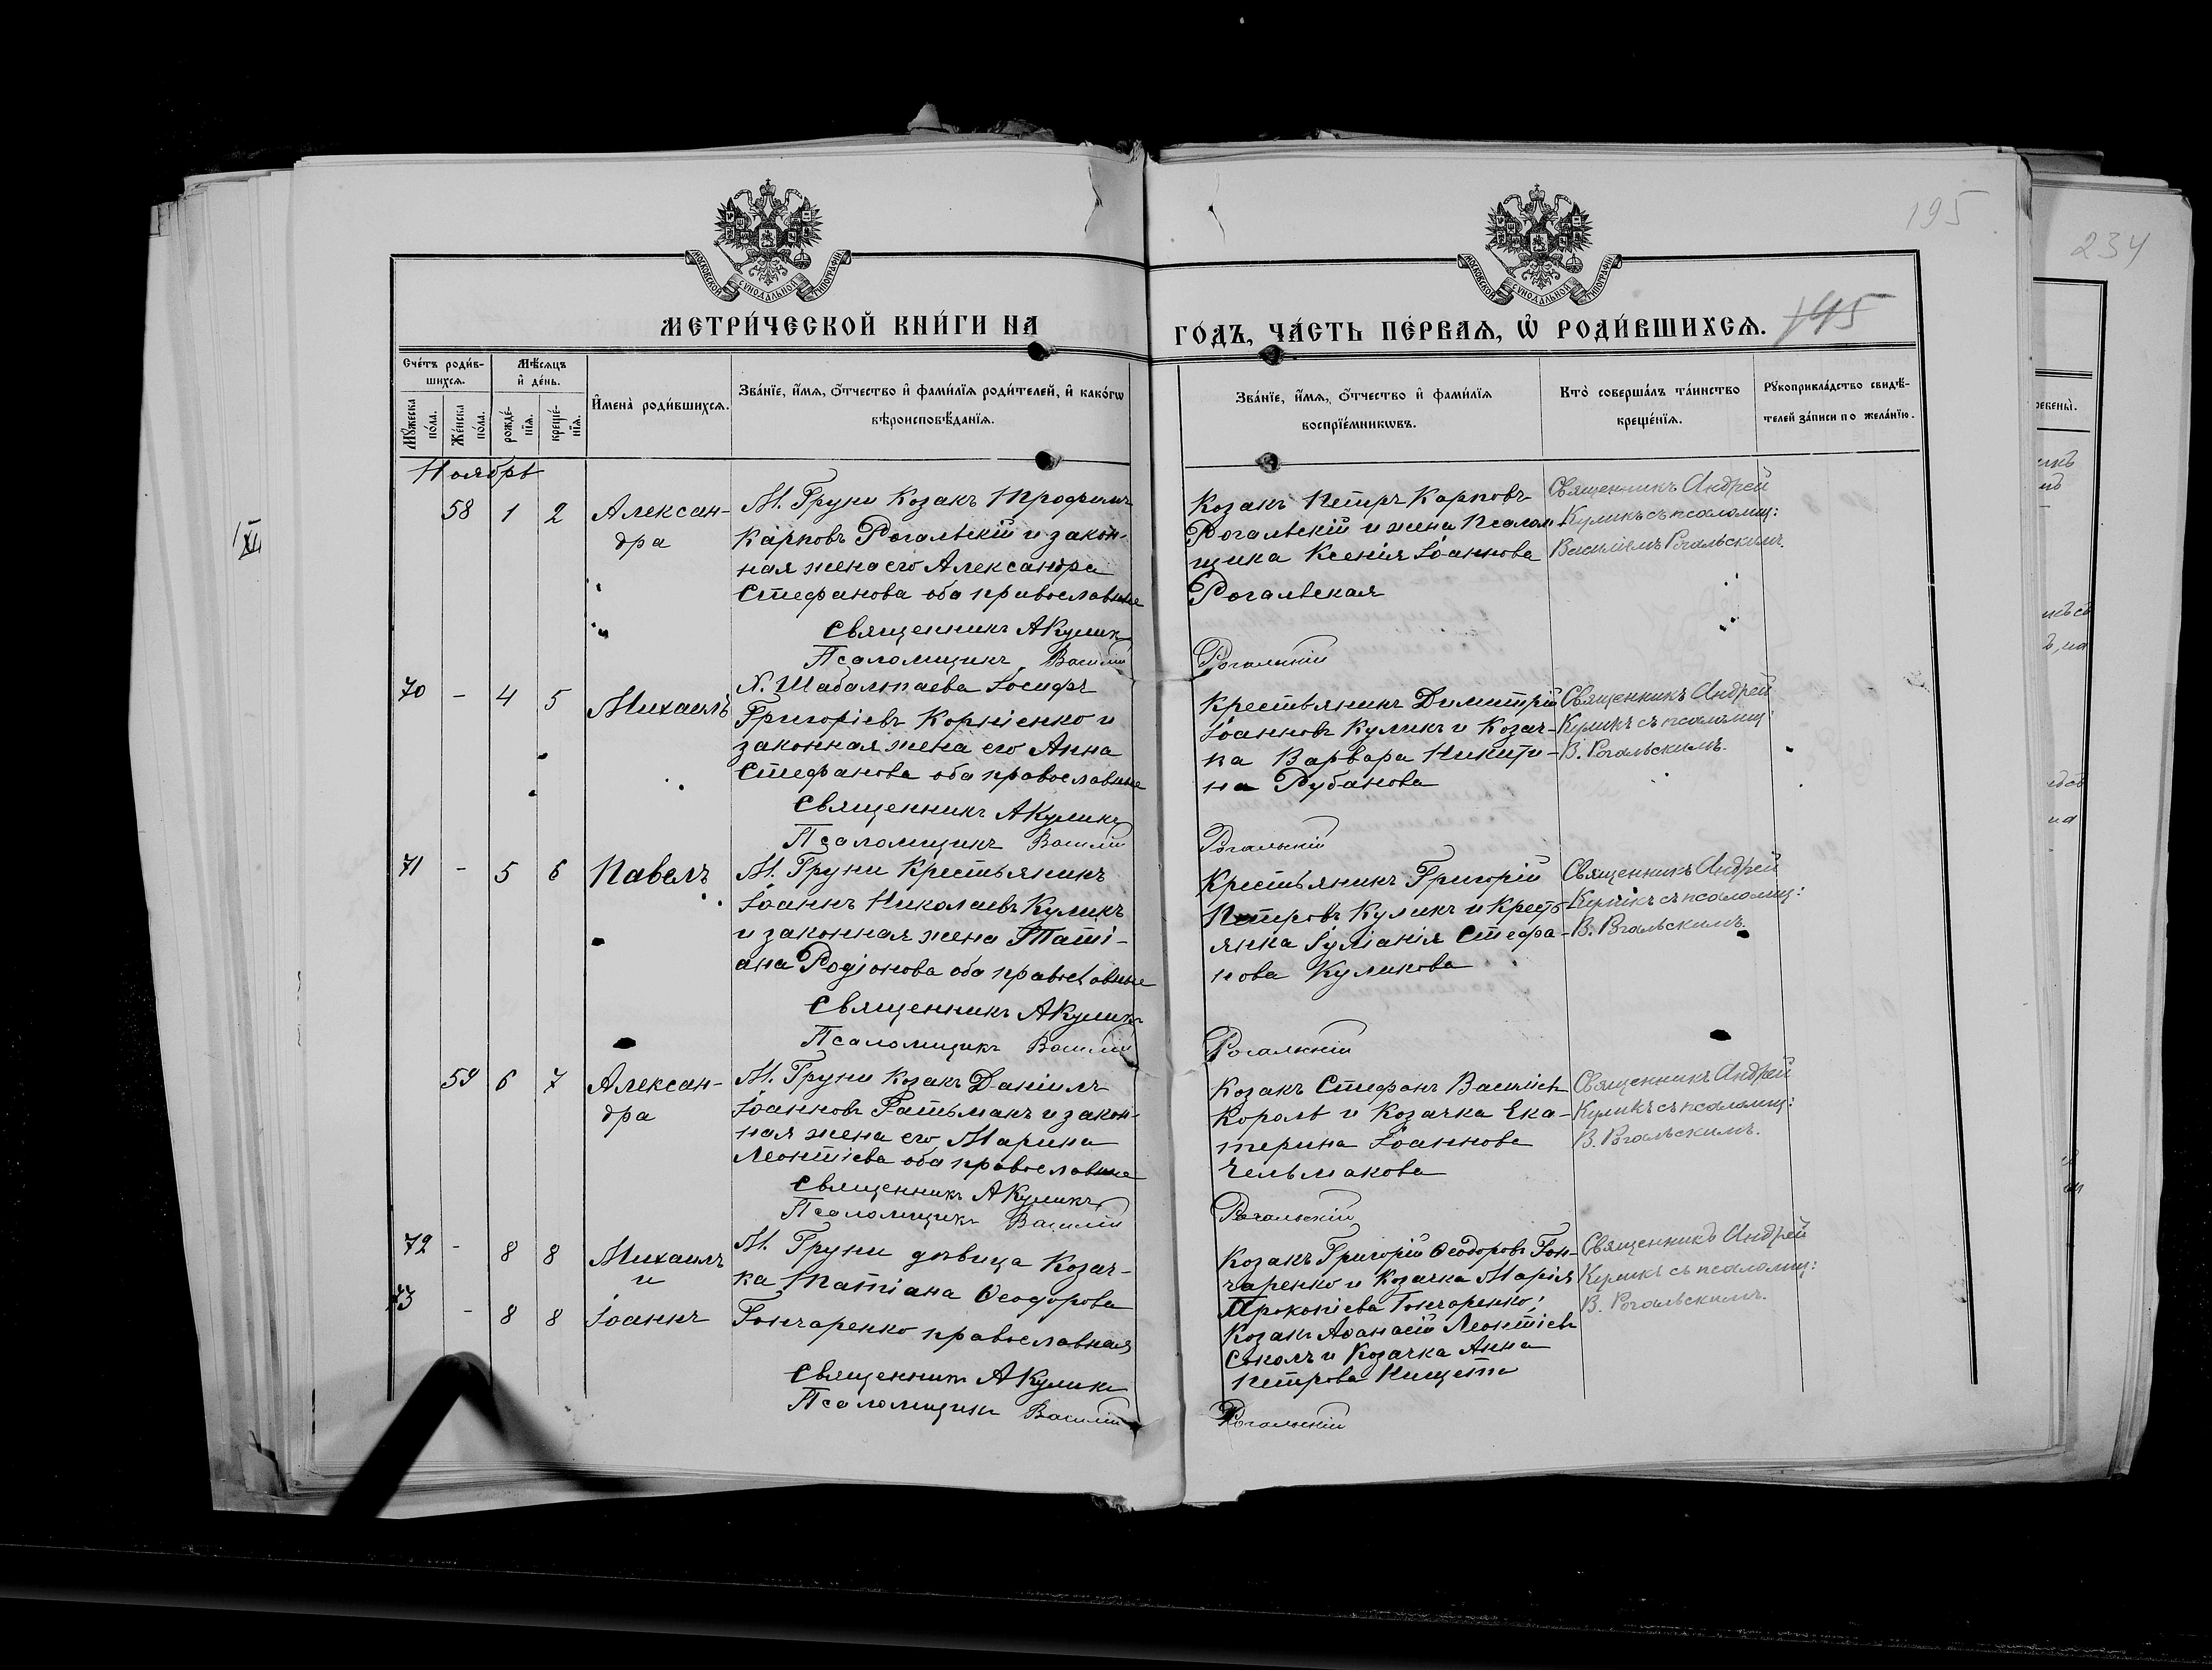 195
234
МОСКОВСКОЙ СѴНОДАЛЬНОЙ ТИПОГРАФІИ
МОСКОВСКОЙ СѴНОДАЛЬНОЙ ТИПОГРАФІИ
МЕТРИ́ЧЕСКОЙ КНИ́ГИ НА
ГО́ДЪ, ЧА́СТЬ ПЕ́РВАѦ, Ѡ҆ РОДИ́ВШИХСѦ.
145
Сче́тъ роди́в-
шихсѧ.
Мѣ́сѧцъ
и҆ де́нь.
Мꙋ́жеска
по́ла.
Же́нска
по́ла.
рожде́-
нїѧ.
креще́-
нїѧ.
И҆мена̀ роди́вшихсѧ.
Зва́нїе, и҆́мѧ, ѻ҆́тчество и҆ фами́лїѧ роди́телей, и҆ како́гѡ
вѣроисповѣ́данїѧ.
Зва́нїе, и҆́мѧ, ѻ҆́тчество и҆ фами́лїѧ
воспрїе́мникѡвъ.
Кто̀ соверша́лъ та́инство
креще́нїѧ.
Рꙋкоприкла́дство свидѣ́-
телей за́писи по жела́нїю.
Ноябрь
58 1 2 Алексан-
дра
М. Груни Козакъ Трофимъ
Карповъ Рогальскій и закон-
ная жена его Александра
Стефанова оба православные
Священникъ АКулик
Псаломщикъ Василій
Козакъ Петръ Карповъ
Рогальскій и жена псалом-
щика Ксенія Іоаннова
Рогальская
Рогальскій
Священникъ Андрей
Куликъ съ псаломщ:
Василіемъ Рогальскимъ.
70 - 4 5 Михаилъ
Х. Шабалтаева Іосифъ
Григоріевъ Корніенко и
законная жена его Анна
Стефанова оба православные
Священникъ АКуликъ
Псаломщикъ Василій
Крестьянинъ Димитрій
Іоанновъ Куликъ и Козач-
ка Варвара Никити-
на Рубанова
Рогальскій
Священникъ Андрей
Куликъ съ псаломщ:
В. Рогальскимъ.
71 - 5 6 Павелъ
М. Груни Крестьянинъ
Іоаннъ Николаевъ Куликъ
и законная жена Таті-
ана Родіонова оба православные
Священникъ АКуликъ
Псаломщикъ Василій
Крестьянинъ Григорій
Петровъ Куликъ и Крест-
янка Іуліанія Стефа-
нова Куликова
Рогальскій
Священникъ Андрей
Куликъ съ псаломщ:
В. Рогальскимъ.
59 6 7 Алексан-
дра
М. Груни Козакъ Даніилъ
Іоанновъ Ратьманъ и закон-
ная жена его Марина
Леонтіева оба православные
Священникъ АКуликъ
Псаломщикъ Василій
Козакъ Стефанъ Василіев
Король и Козачка Ека-
терина Іоаннова
Чельмакова
Рогальскій
Священникъ Андрей
Куликъ съ псаломщ:
В. Рогальскимъ.
72 - 8 8 Михаилъ
и
73 - 8 8 Іоаннъ
М. Груни дѣвица Козач-
ка Татіана Ѳеодорова
Гончаренко православная
Священник АКулик
Псаломщикъ Василій
Козакъ Григорій Ѳеодоровъ Гон-
чаренко и Козачка Марія
Прокопіева Гончаренко;
Козакъ Аѳанасій Леонтіевъ
Соколъ и Козачка Анна
Петрова Нищета
Рогальскій
Священникъ Андрей
Куликъ съ псаломщ:
В. Рогальскимъ.